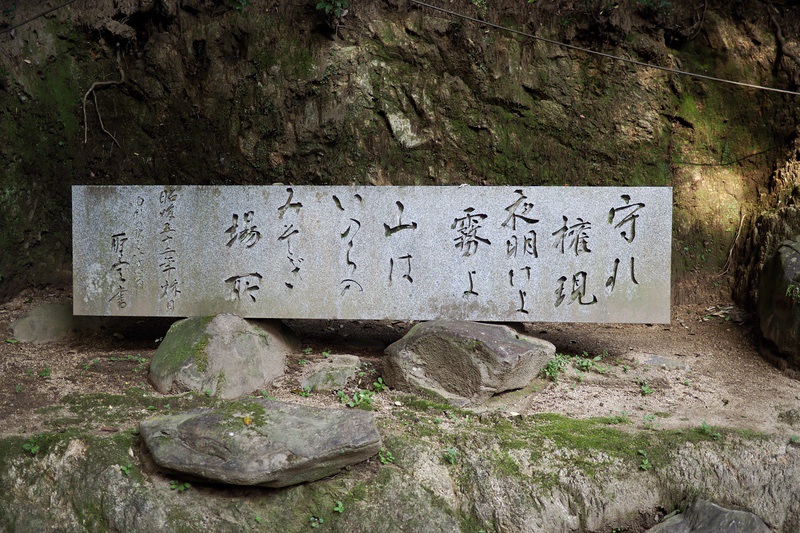 守れ
権現
夜明けよ
霧よ
山は
いのちの
みそぎ
場所
昭和五十二年秋日
聖空書